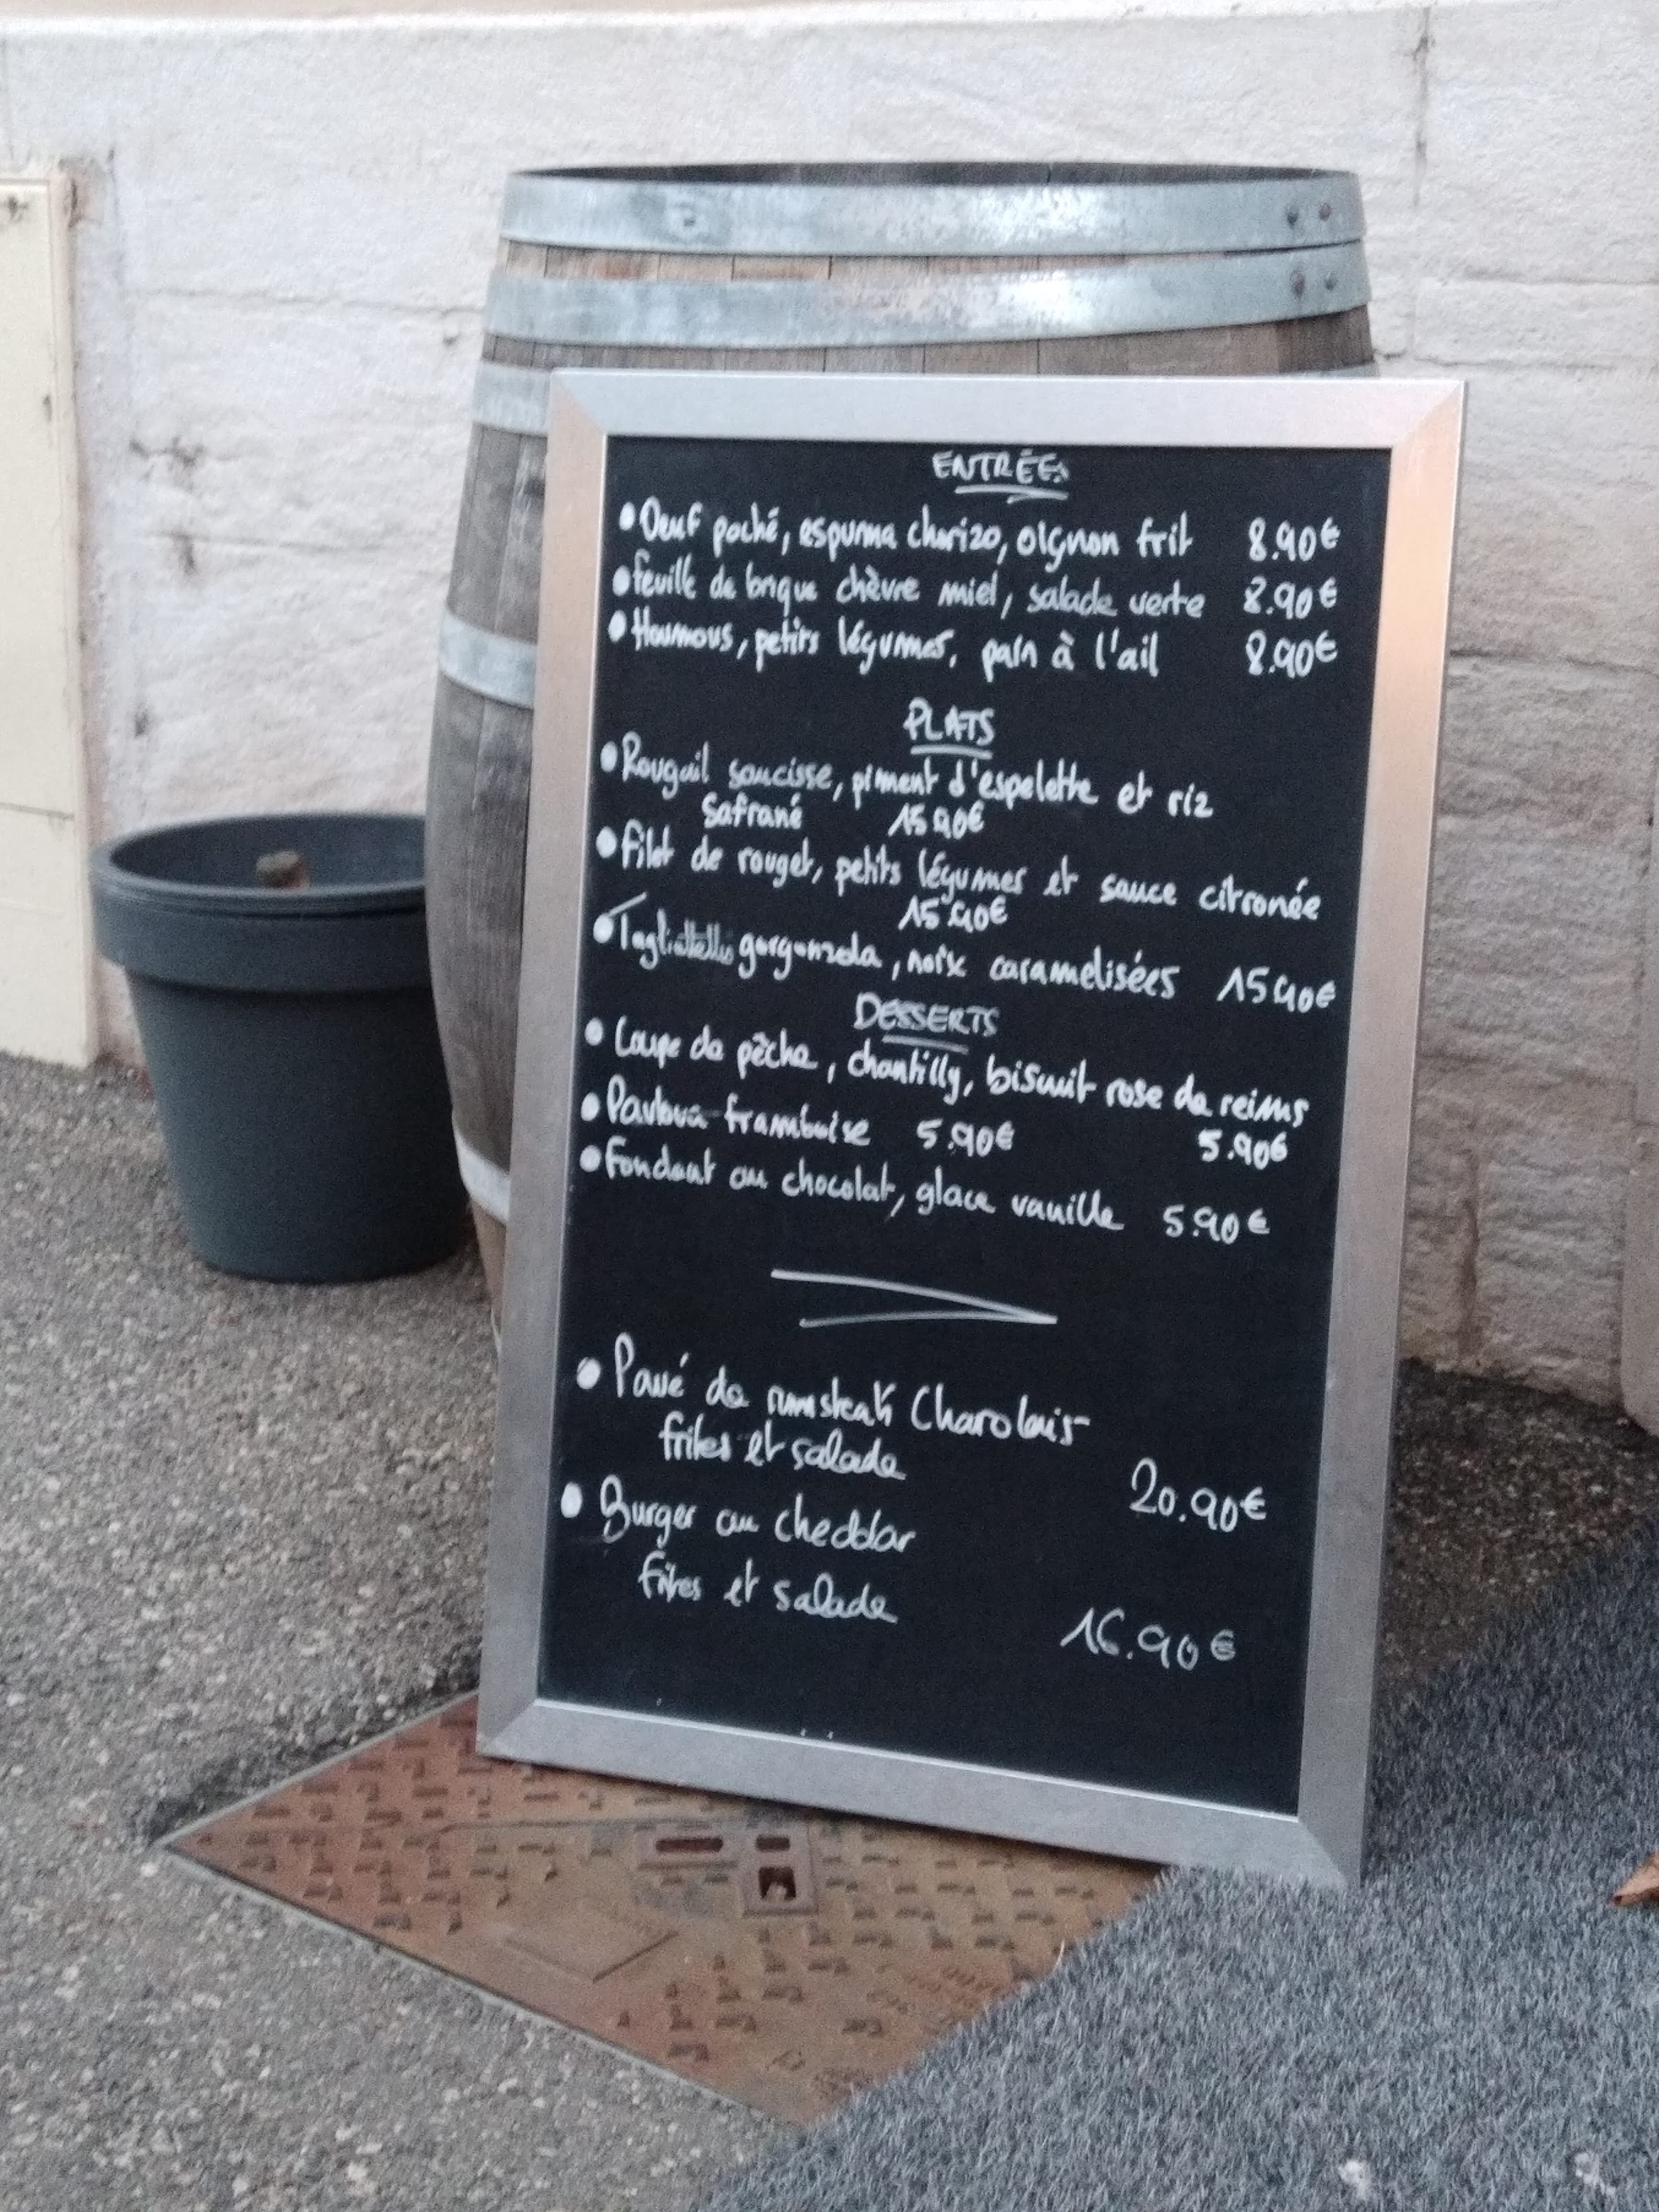 ENTRÉES
• Oeuf poché, espuma chorizo, oignon frit 8.90€
• feuille de brique chèvre miel, salade verte 8.90€
• Houmous, petits légumes, pain à l'ail 8.90€
PLATS
• Rougail saucisse, piment d'espelette et riz
safrané 15.90€
• filet de rouget, petits légumes et sauce citronée
15.90€
• Tagliattelles gorgonzola, noix caramelisées 15.90€
DESSERTS
• Coupe de pêche, chantilly, biscuit rose de reims
5.90€
• Pavlova framboise 5.90€
• Fondant au chocolat, glace vanille 5.90€
• Pavé de rumsteak Charolais
frites et salade
20.90€
• Burger au cheddar
frites et salade
16.90€